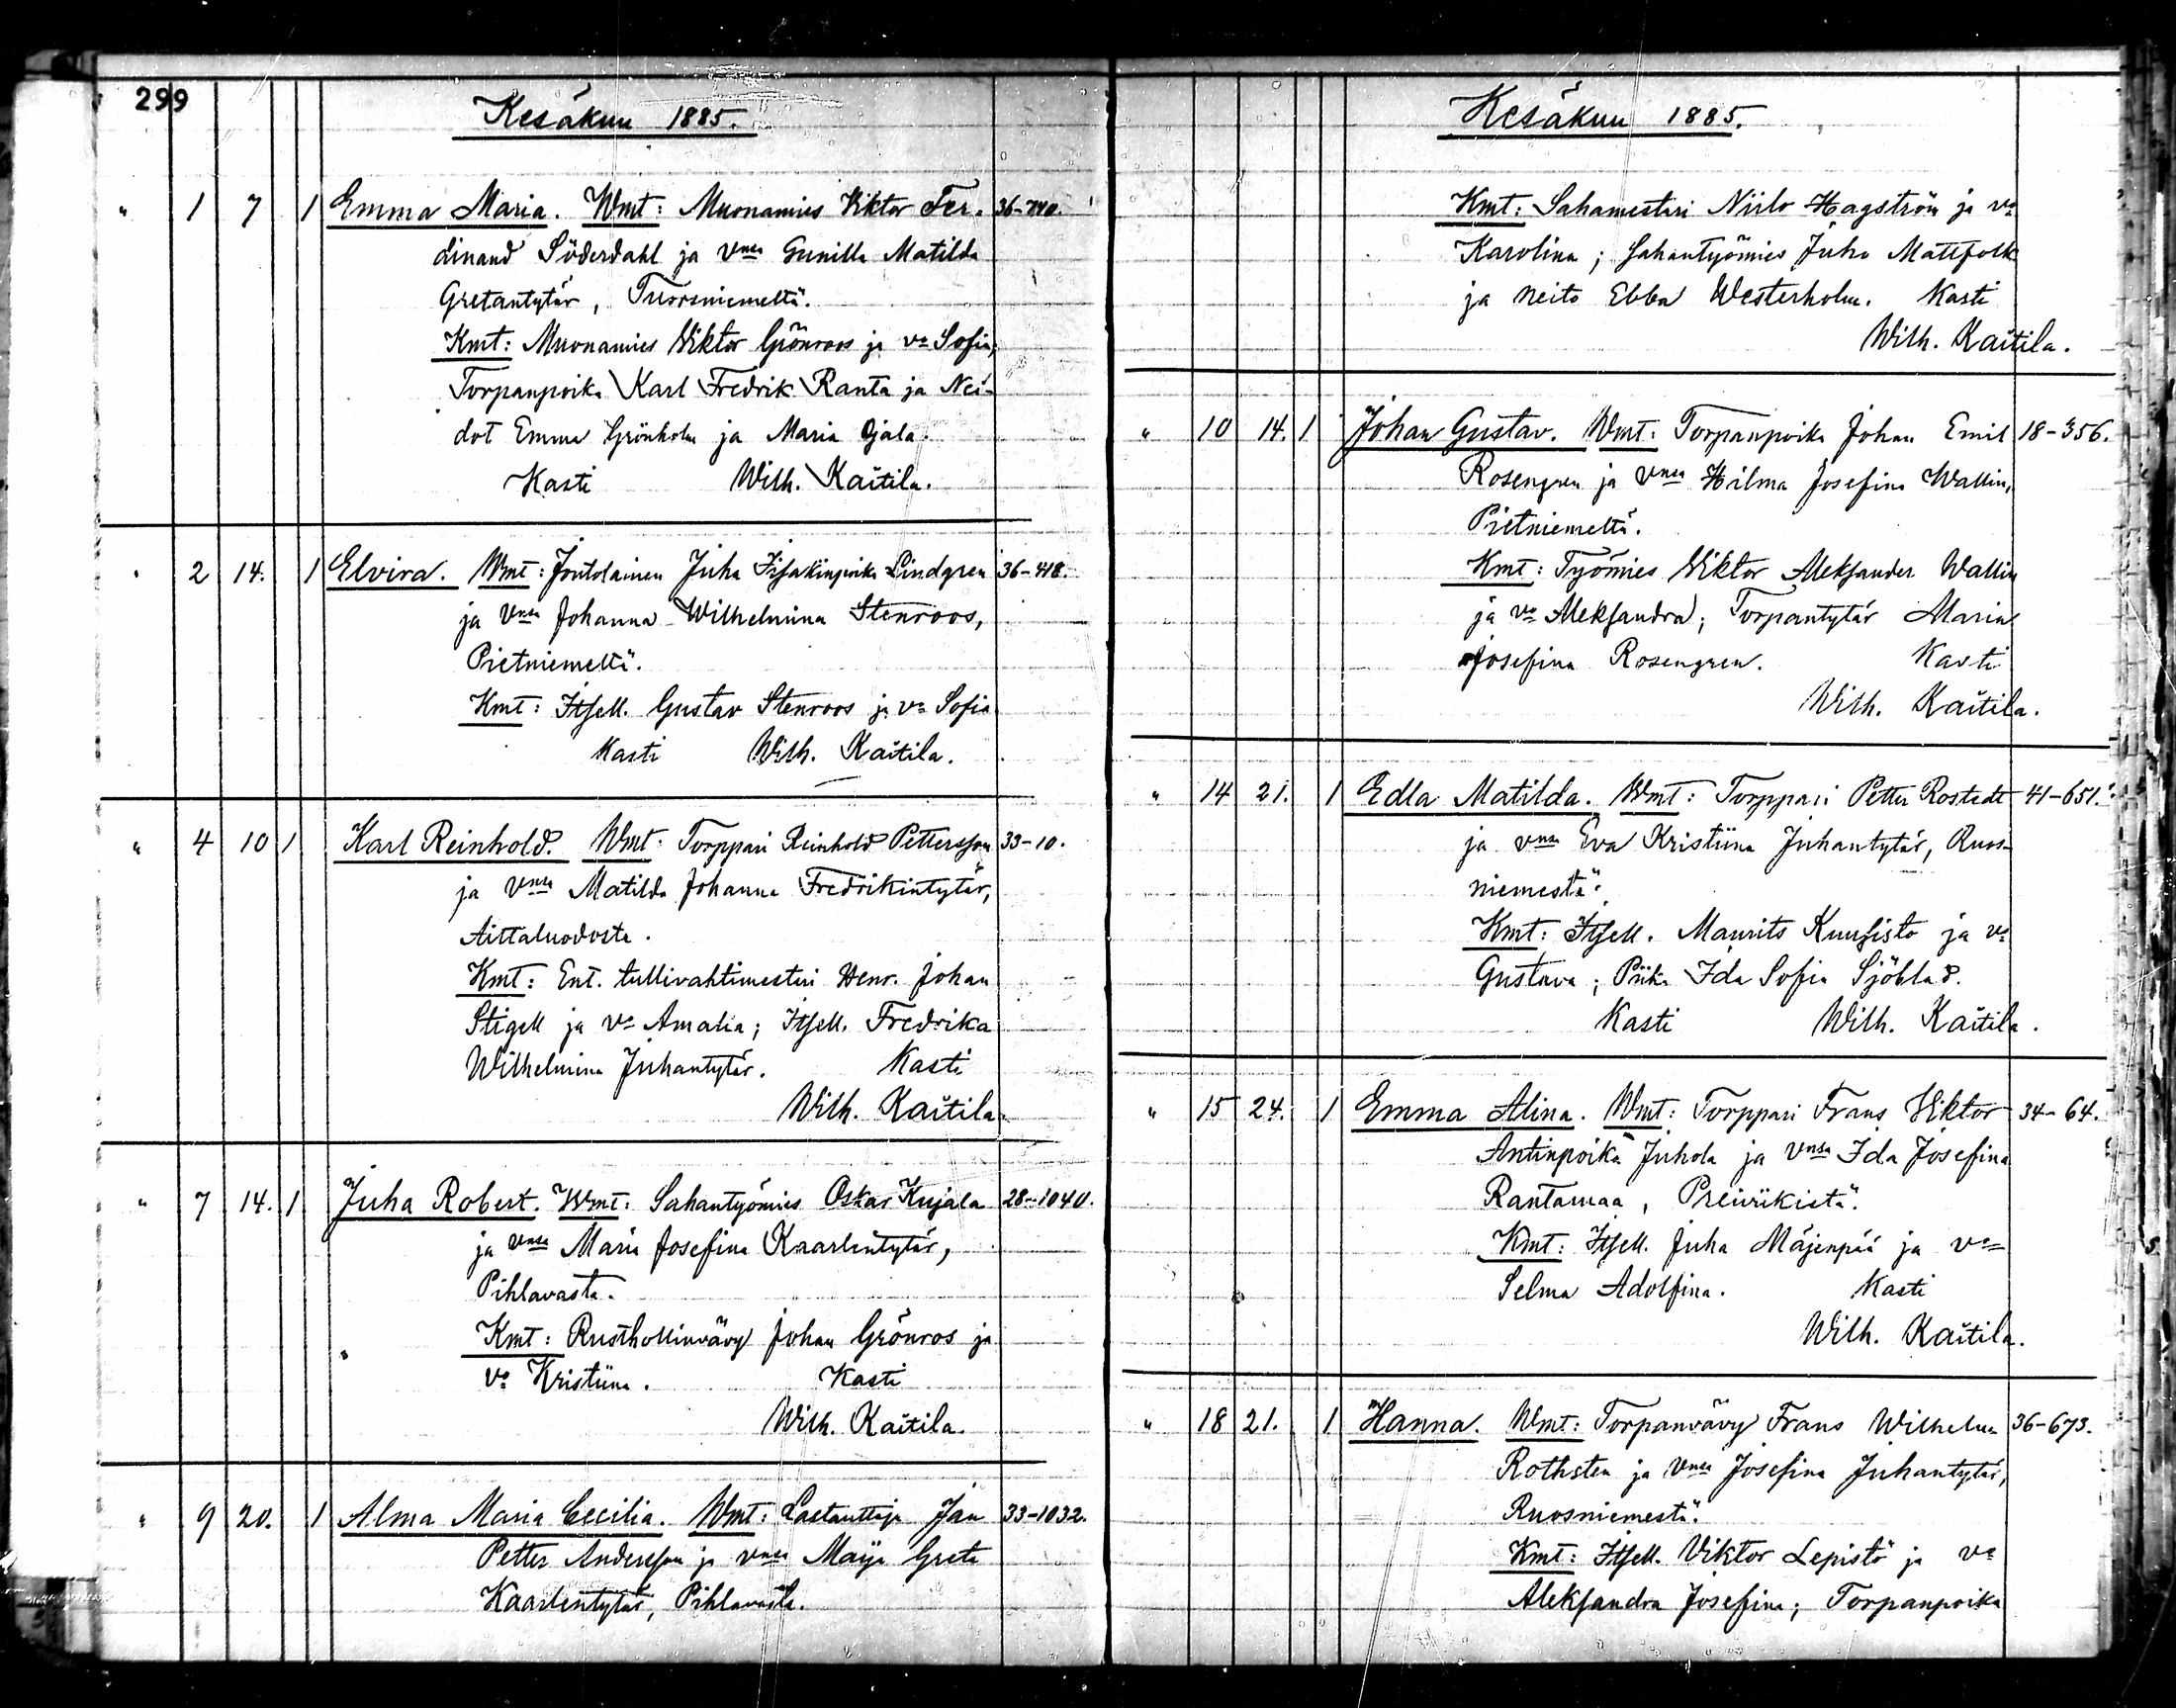 299
Kesäkuu 1885.
" 1 7 1 Emma Maria. Wmt: Muonamies Viktor Fer- 36-740.
dinand Söderdahl ja vmsa Gunilla Matilda
Gretantytär, Tuorsniemeltä.
Kmt: Muonamies Viktor Grönroos ja va Sofia;
Torpanpoika Karl Fredrik Ranta ja Nei-
dot Emma Grönholm ja Maria Ojala.
Kasti Wilh. Kaitila.
" 2 14. 1 Elvira. Wmt: Joutolainen Juha Iisakinpoika Lindgren 36-418.
ja vmsa Johanna Wilhelmina Stenroos,
Pietniemeltä.
Kmt: Itsell. Gustav Stenroos ja va Sofia
Kasti Wilh. Kaitila.
" 4 10 1 Karl Reinhold. Wmt: Torppari Reinhold Pettersson 33-10.
ja vmsa Matilda Johanna Fredrikintytär,
Aittaluodosta.
Kmt: Ent. tullivahtimestari Henr. Johan
Stigell ja va Amalia; Itsell. Fredrika
Wilhelmina Juhantytär. Kasti
Wilh. Kaitila
" 7 14. 1 Juha Robert. Wmt: Sahantyömies Oskar Kujala 28-1040.
ja vmsa Maria Josefina Kaarlentytär,
Pihlavasta.
Kmt: Rusthollinvävy Johan Grönros ja
va Kristiina. Kasti
Wilh. Kaitila.
" 9 20. 1 Alma Maria Cecilia. Wmt: Lastauttaja Jan 33-1032.
Petter Andersson ja vmsa Maija Greta
Kaarlentytär, Pihlavasta.
Kesäkuu 1885.
Kmt: Sahamestari Niilo Hagström ja va
Karolina; Sahantyömies Juho Mattfolk
ja neito Ebba Westerholm. Kasti
Wilh. Kaitila.
" 10 14. 1 Johan Gustav. Wmt: Torpanpoika Johan Emil 18-356.
Rosengren ja vmsa Hilma Josefina Wallin,
Pietniemeltä.
Kmt: Työmies Viktor Aleksander Wallin
ja va Aleksandra; Torpantytär Maria
Josefina Rosengren. Kasti
Wilh. Kaitila.
" 14 21. 1 Edla Matilda. Wmt: Torppari Petter Rostedt 41-651.
ja vmsa Eva Kristiina Juhantytär, Ruos-
niemestä.
Kmt: Itsell. Maurits Kuusisto ja va
Gustava; Piika Ida Sofia Sjöblad.
Kasti Wilh. Kaitila.
" 15 24. 1 Emma Alina. Wmt: Torppari Frans Viktor 34-64.
Antinpoika Juhola ja vmsa Ida Josefina
Rantamaa, Preiviikistä.
Kmt: Itsell. Juha Mäjenpää ja va
Selma Adolfina. Kasti
Wilh. Kaitila.
" 18 21. 1 Hanna. Wmt: Torpanvävy Frans Wilhelm 36-673.
Rothsten ja vmsa Josefina Juhantytär,
Ruosniemestä.
Kmt: Itsell. Viktor Lepistö ja va
Aleksandra Josefina; Torpanpoika